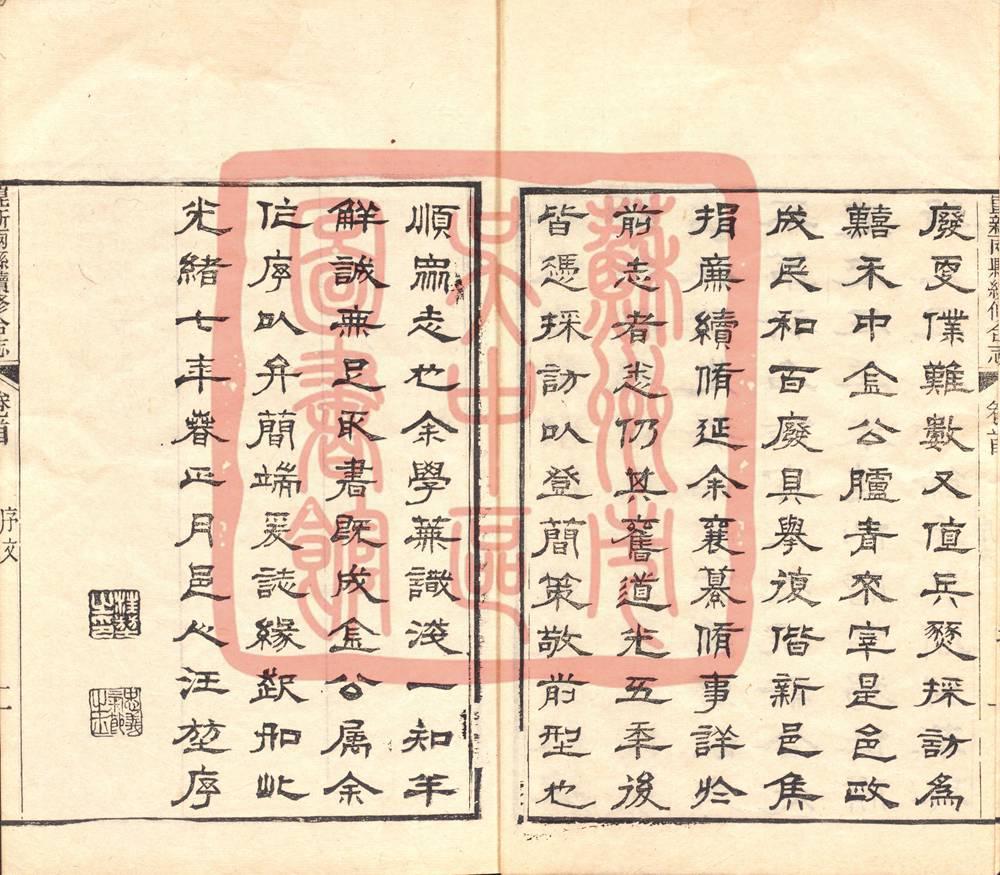 廢更僕難數又值兵燹採訪爲
囏不中金公臚青來宰是邑政
成民和百廢具舉復偕新邑焦
捐廉續脩延余襄纂脩事詳於
前志者悉仍其舊道光五年後
皆憑採訪以登簡策敬前型也
順眾志也余學蕪識淺一知半
解誠無足取書既成金公属余
作序以弁簡端爰誌緣起如此
光緒七年春正月邑人汪堃序
昆新兩縣續修合志
卷首
序文
二
蘇州市
吳中區
圖書館